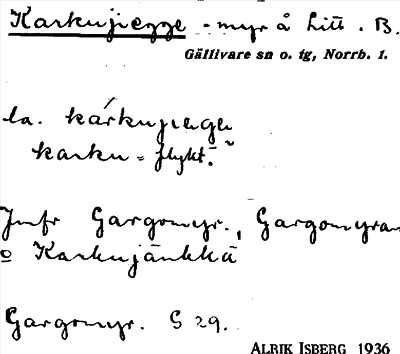 Karkujegge - myr å Litt. B.
Gällivare sn o. tg, Norrb. 1.
la. kárkujegge
karku = flykt.
Jmfr Gargomyr., Gargomyran
o Karkujänkkä
Gargomyr. G 29.
ALRIK ISBERG 1936